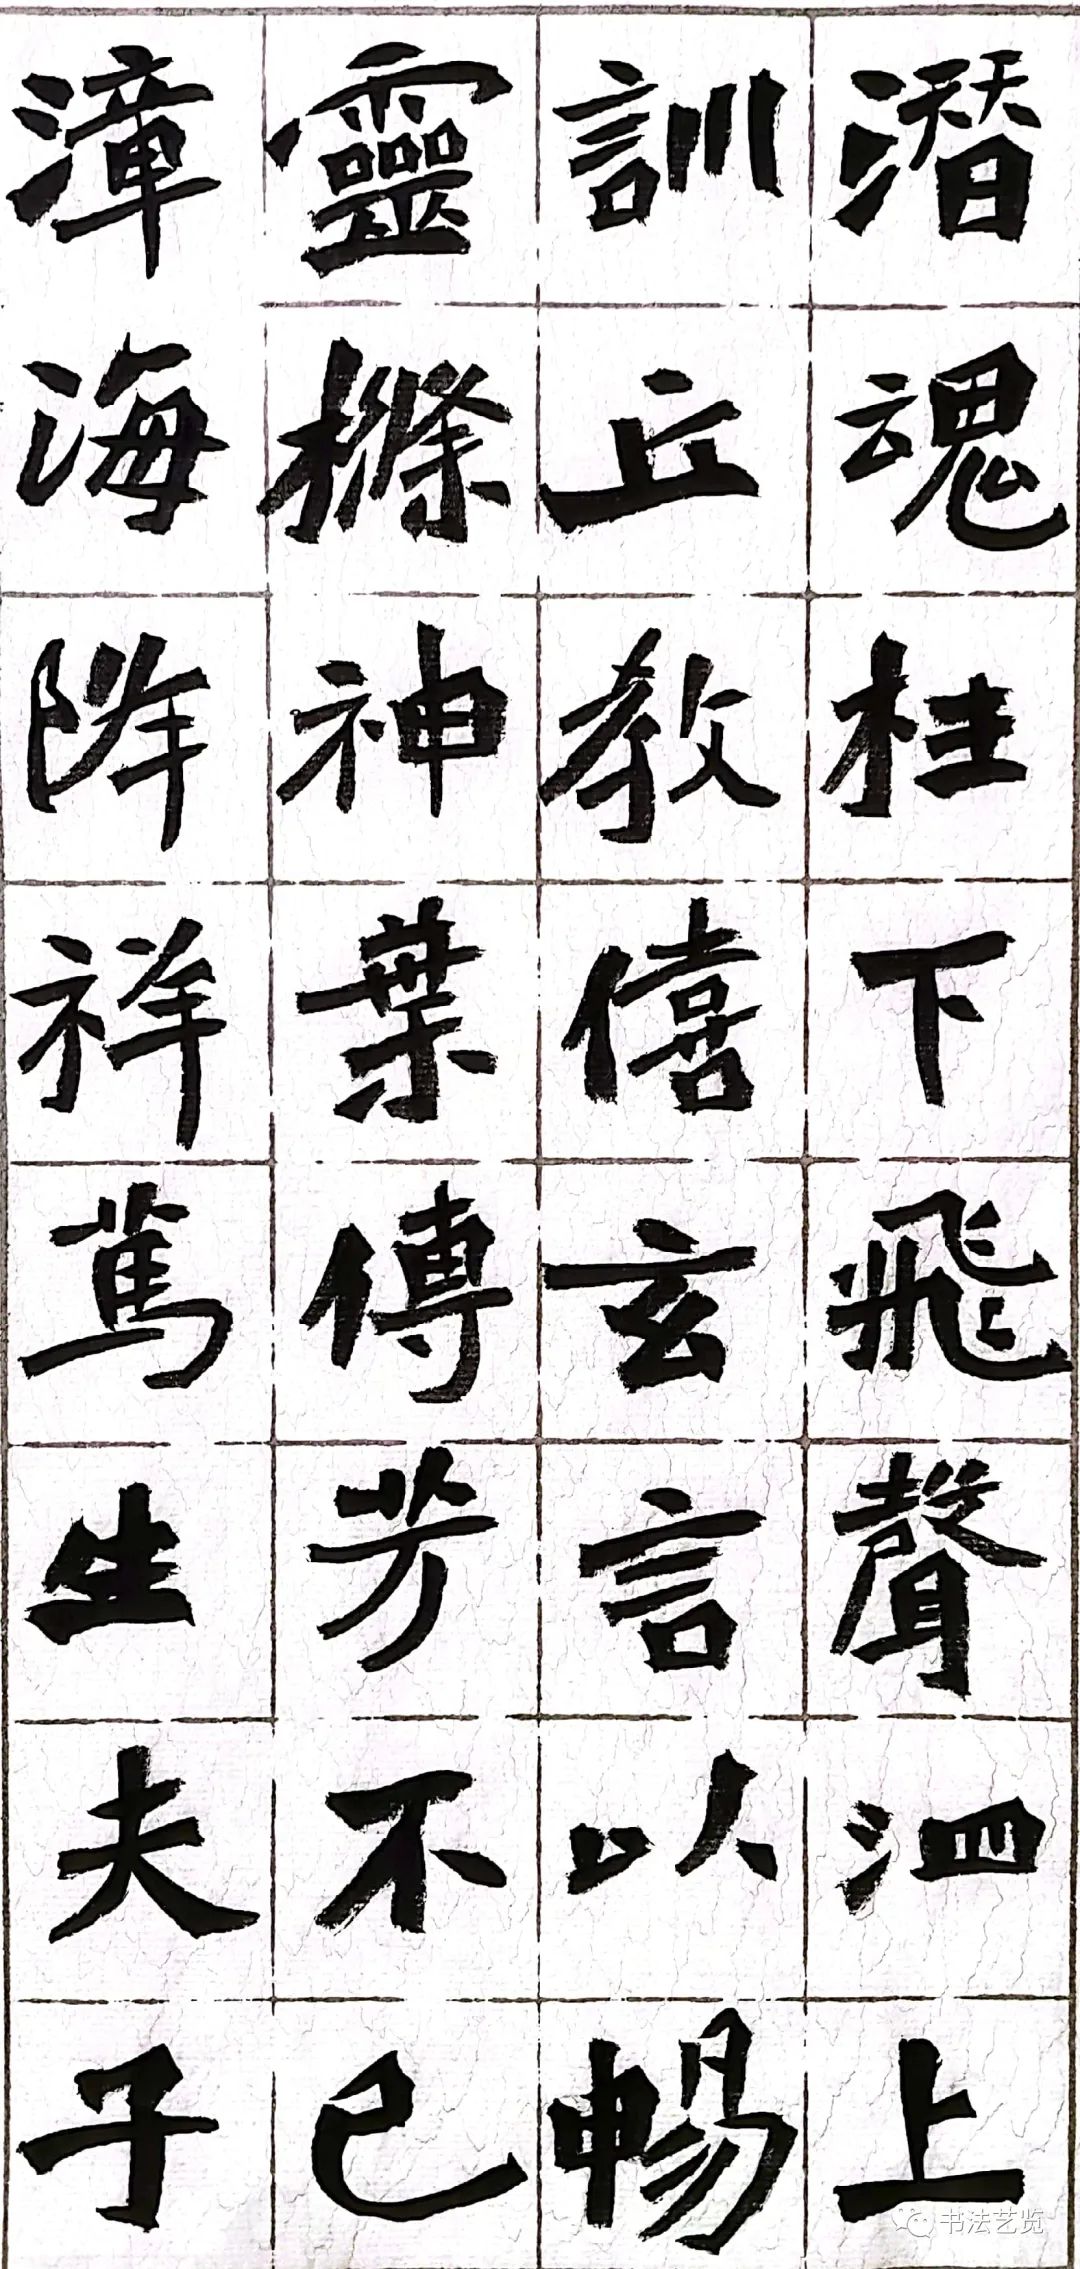 潛魂柱下飛聲泗上
訓丘教僖玄言以暢
靈條神葉傳芳不已
漳海降祥篤生夫子
书法艺览